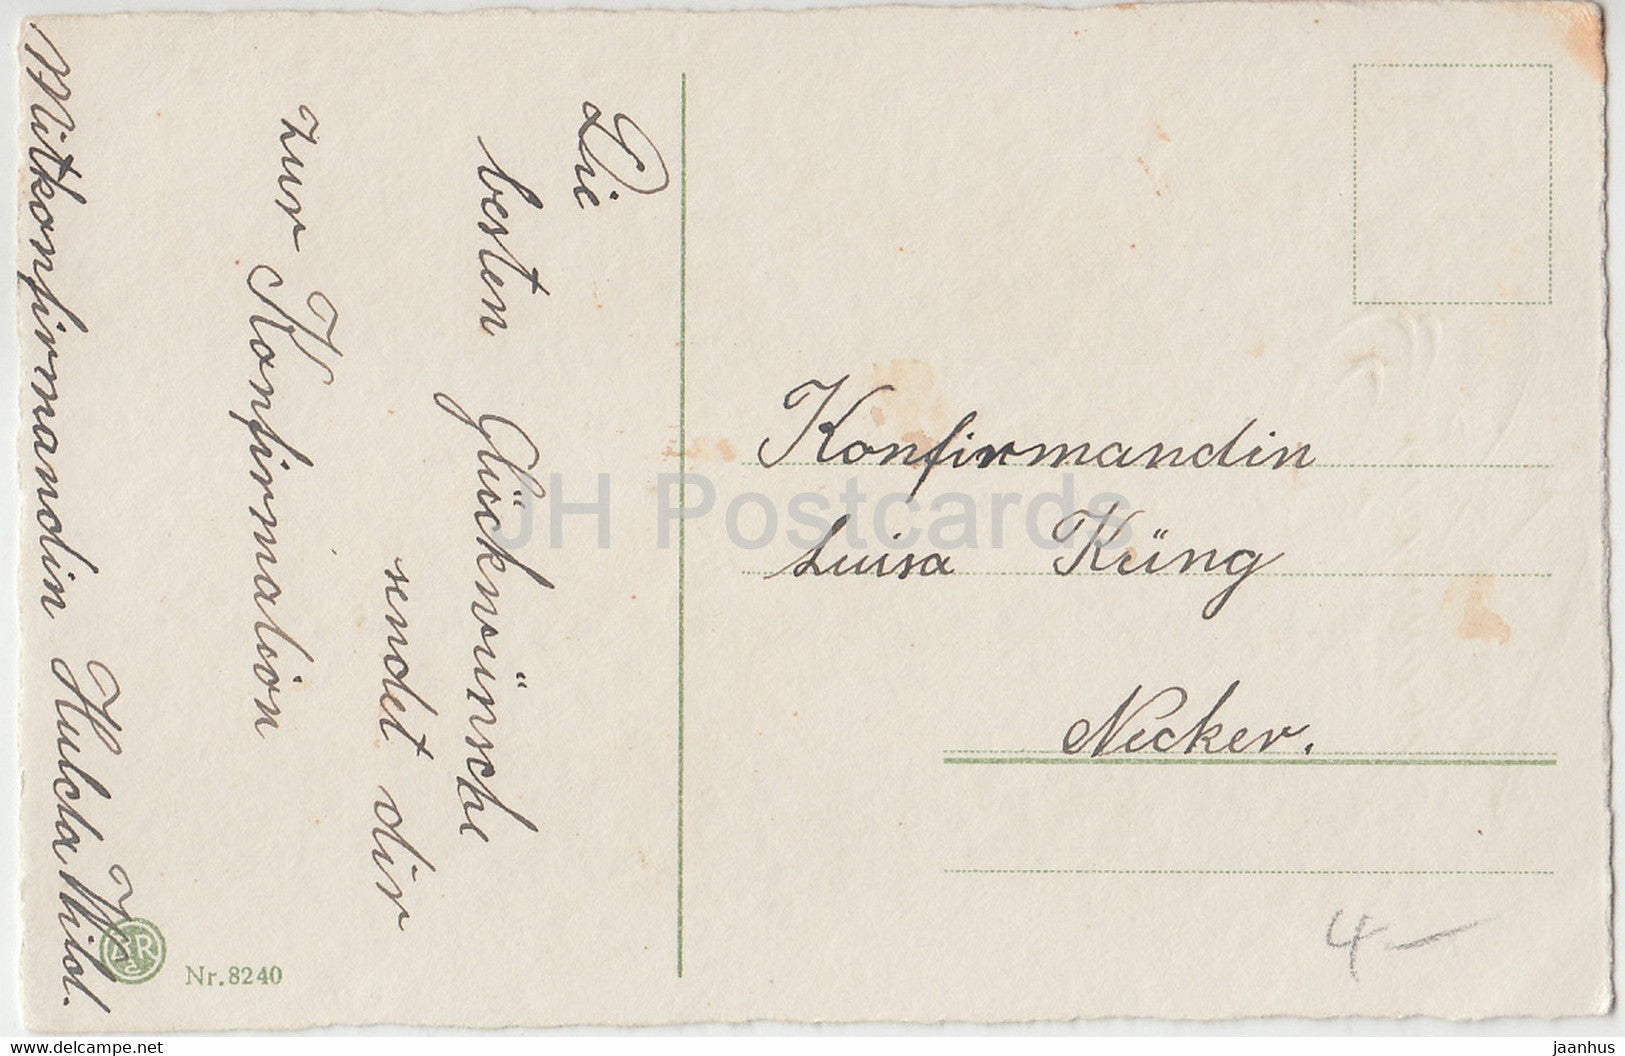 Die
besten Glückwünsche
zur Konfirmation
sendet dir
Mitkonfirmandin Hulda Wild.
Konfirmandin
Luisa Küng
Necker.
4-
Nr. 8240
JH Postcards
www.delcampe.net
jaanhus